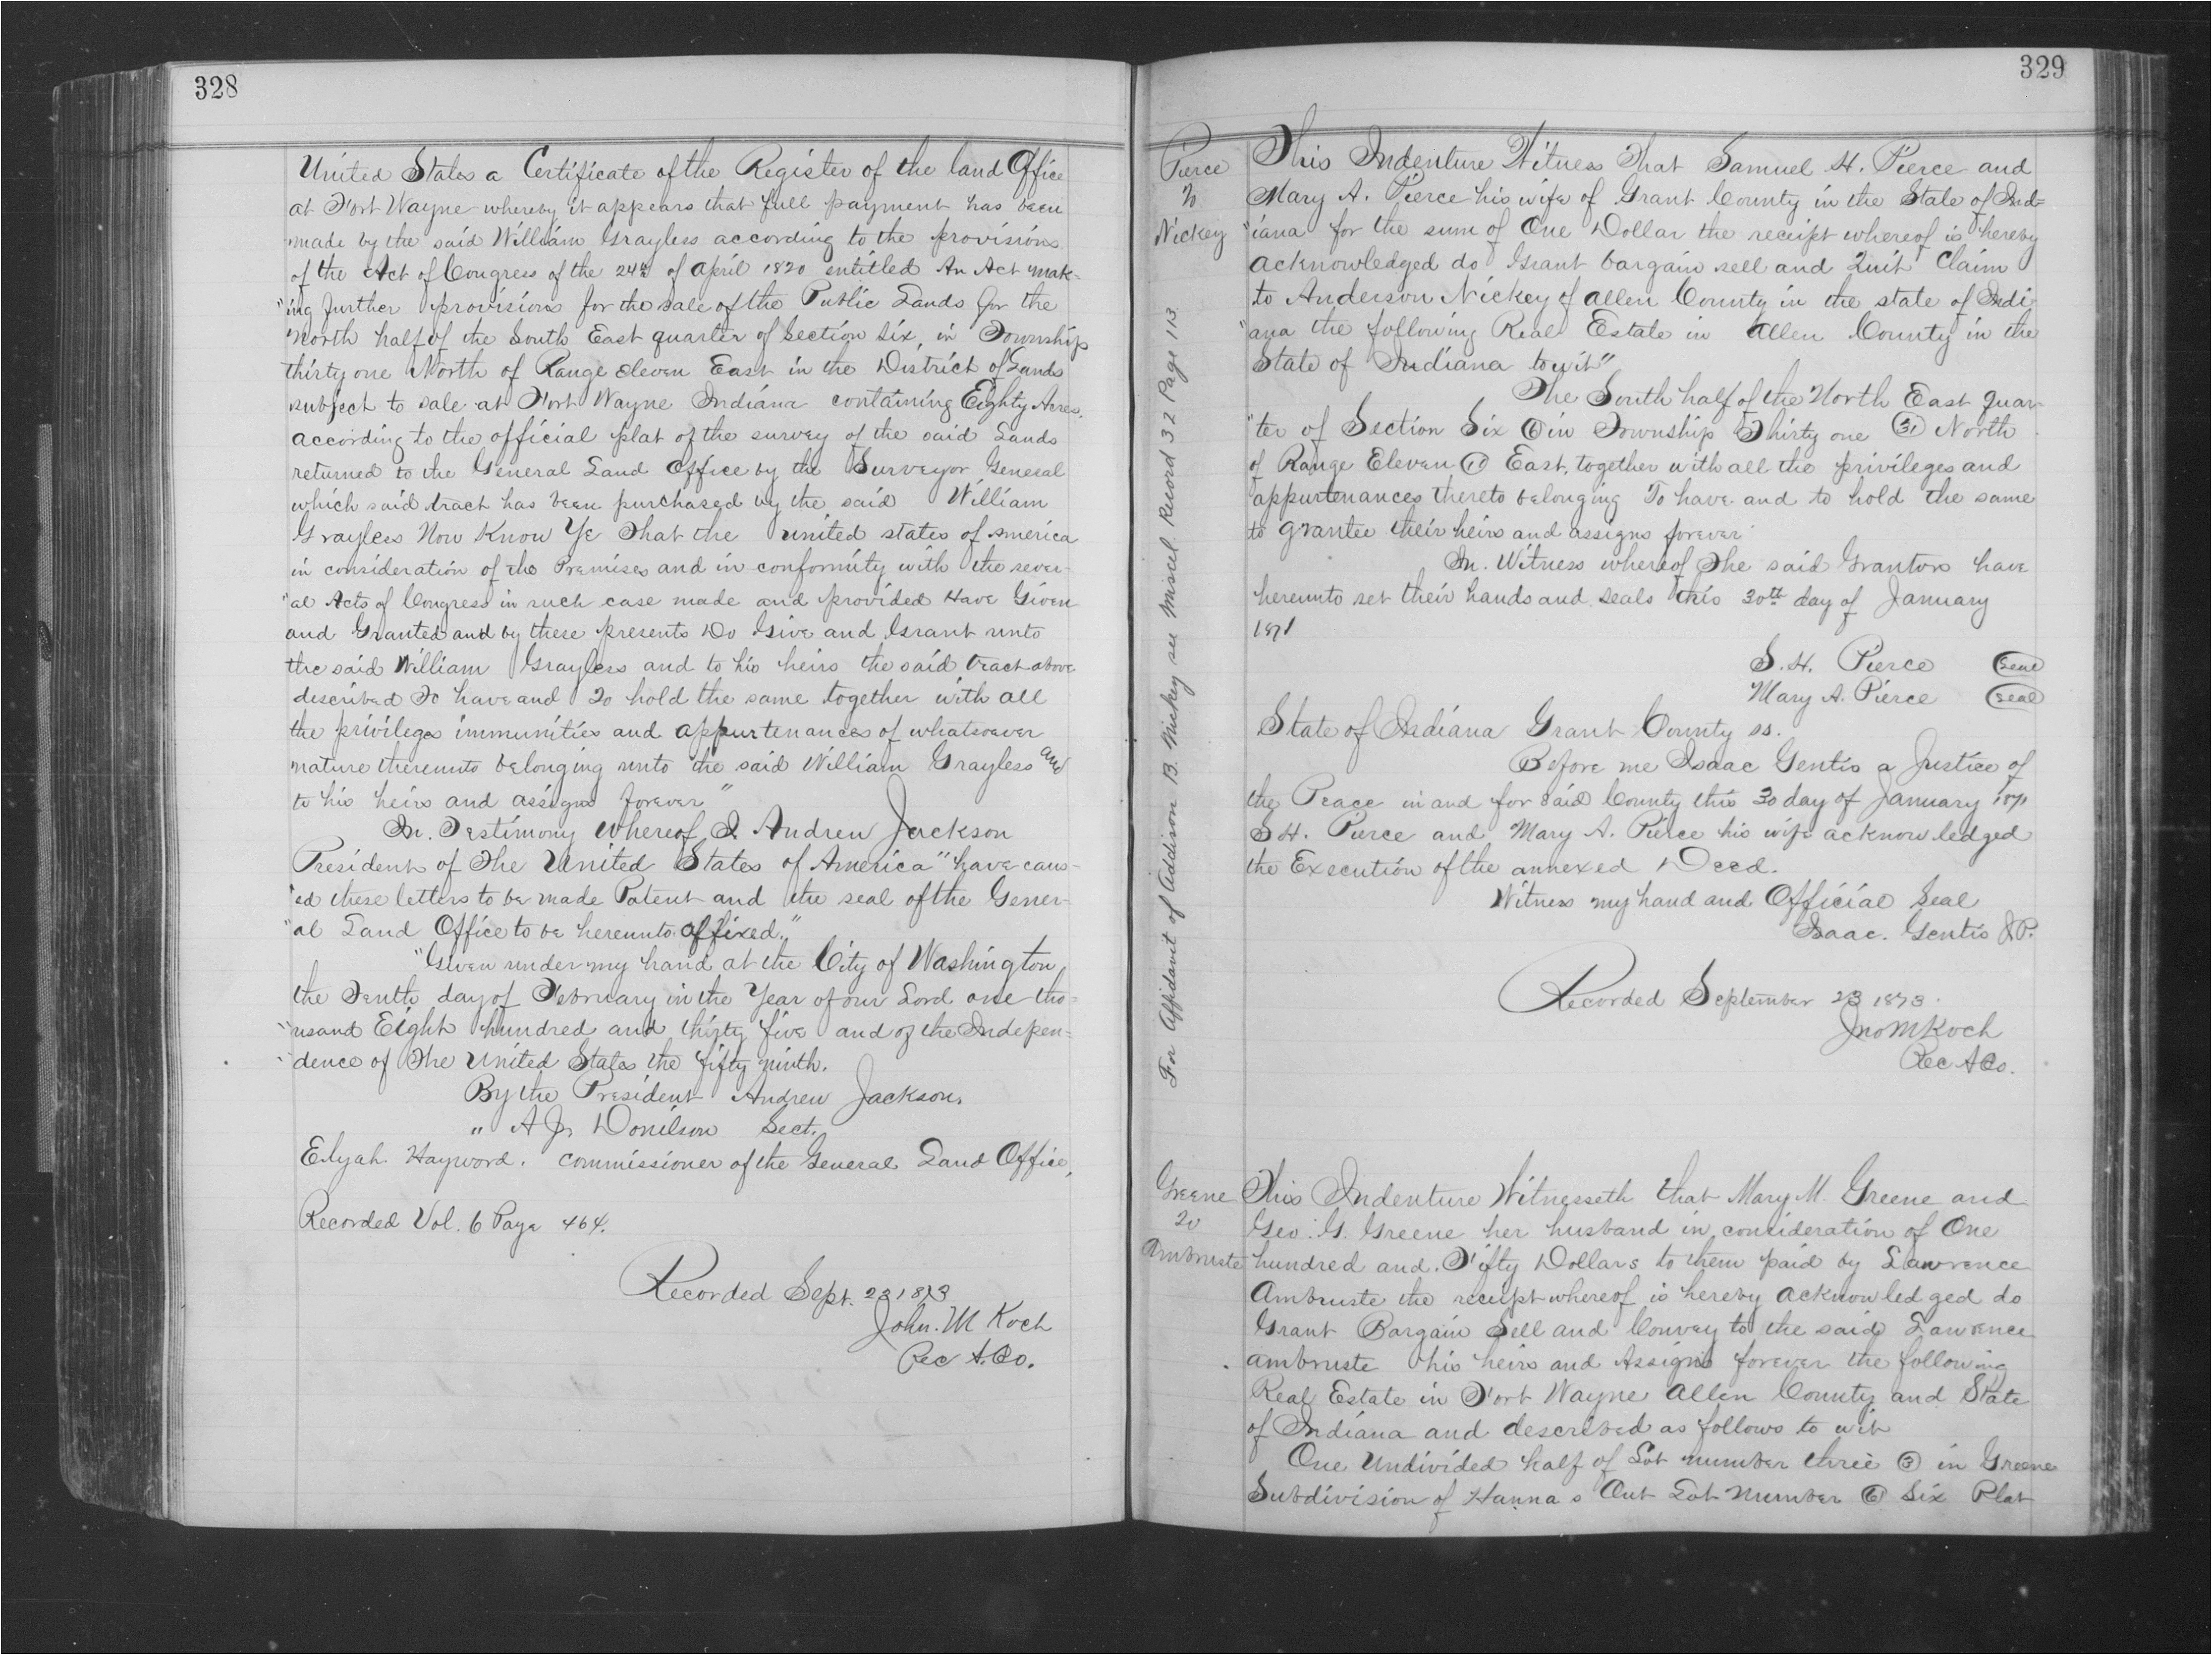 328
United States a Certificate of the Register of the land Office
at Fort Wayne whereby it appears that full payment has been
made by the said William Grayless according to the provisions
of the Act of Congress of the 24th of April 1820 entitled An Act mak-
"ing further provisions for the sale of the Public Lands for the
North half of the South East quarter of Section Six, in Township
thirty one North of Range eleven East in the District of Lands
subject to sale at Fort Wayne Indiana containing Eighty Acres.
according to the official plat of the survey of the said Lands
returned to the General Land Office by the Surveyor General
which said tract has been purchased by the said William
Grayless Now Know Ye That the United States of America
in consideration of the Premises and in conformity with the sever-
"al Acts of Congress in such case made and provided Have Given
and Granted and by these presents Do Give and Grant unto
the said William Grayless and to his heirs the said tract above
described To have and To hold the same together with all
the privileges immunities and appurtenances of whatsoever
nature thereunto belonging unto the said William Grayless and
to his heirs and assigns forever"
In. Testimony Whereof I Andrew Jackson
President of The United States of America" have caus-
"ed these letters to be made Patent and the seal of the Gener-
"al Land Office to be hereunto affixed."
"Given under my hand at the City of Washington
the Tenth day of February in the Year of our Lord one tho=
"usand Eight hundred and thirty five and of the Indepen=
"dence of The United States the fifty ninth.
By the President Andrew Jackson.
" A J. Donilson Sect.
Elijah Hayword. Commissioner of the General Land Office,
Recorded Vol. 6 Page 464.
Recorded Sept. 23 1873
John. M Koch
Rec A. Co.
329
Pierce
To
Nickey
For Affidavit of Addison B. Nickey see Miscel. Record 32 Page 113.
This Indenture Witness That Samuel H. Pierce and
Mary A. Pierce his wife of Grant County in the State of Ind=
"iana for the sum of One Dollar the receipt whereof is hereby
acknowledged do Grant bargain sell and Quit Claim
to Anderson Nickey of Allen County in the state of Indi
"ana the following Real Estate in Allen County in the
State of Indiana towit"
The South half of the North East quar-
"ter of Section Six (6) in Township Thirty one (31) North
of Range Eleven (11) East, together with all the privileges and
appurtenances thereto belonging To have and to hold the same
to grantee their heirs and assigns forever
In. Witness whereof The said Grantors have
hereunto set their hands and seals this 30th day of January
1871
S. H. Pierce (Seal)
Mary A. Pierce (Seal)
State of Indiana Grant County ss.
Before me Isaac Gentis a Justice of
the Peace in and for said County this 30 day of January 1871
S H. Pierce and Mary A. Pierce his wife acknowledged
the Execution of the annexed Deed.
Witness my hand and Official Seal
Isaac. Gentis J.P.
Recorded September 23 1873.
Jno M Koch
Rec A Co.
Greene
To
Ambruste
This Indenture Witnesseth that Mary M. Greene and
Geo. G. Greene her husband in concideration of One
hundred and Fifty Dollars to them paid by Lawrence
Ambruste the receipt whereof is hereby acknowledged do
Grant Bargain Sell and Convey to the said Lawrence
ambruste his heirs and Assigns forever the following
Real Estate in Fort Wayne Allen County and State
of Indiana and described as follows to wit
One Undivided half of Lot number three (3) in Greene
Subdivision of Hanna s Out Lot Number (6) Six Plat